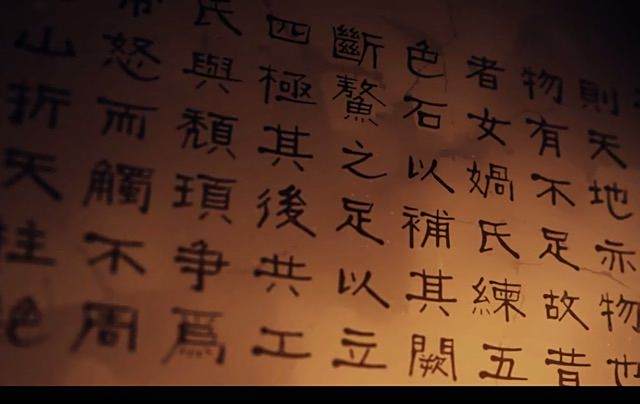 則天地亦物也
物有不足故昔
者女媧氏練五
色石以補其闕
斷鰲之足以立
四極其後共工
氏與顓頊爭爲
帝怒而觸不周
山折天柱絕